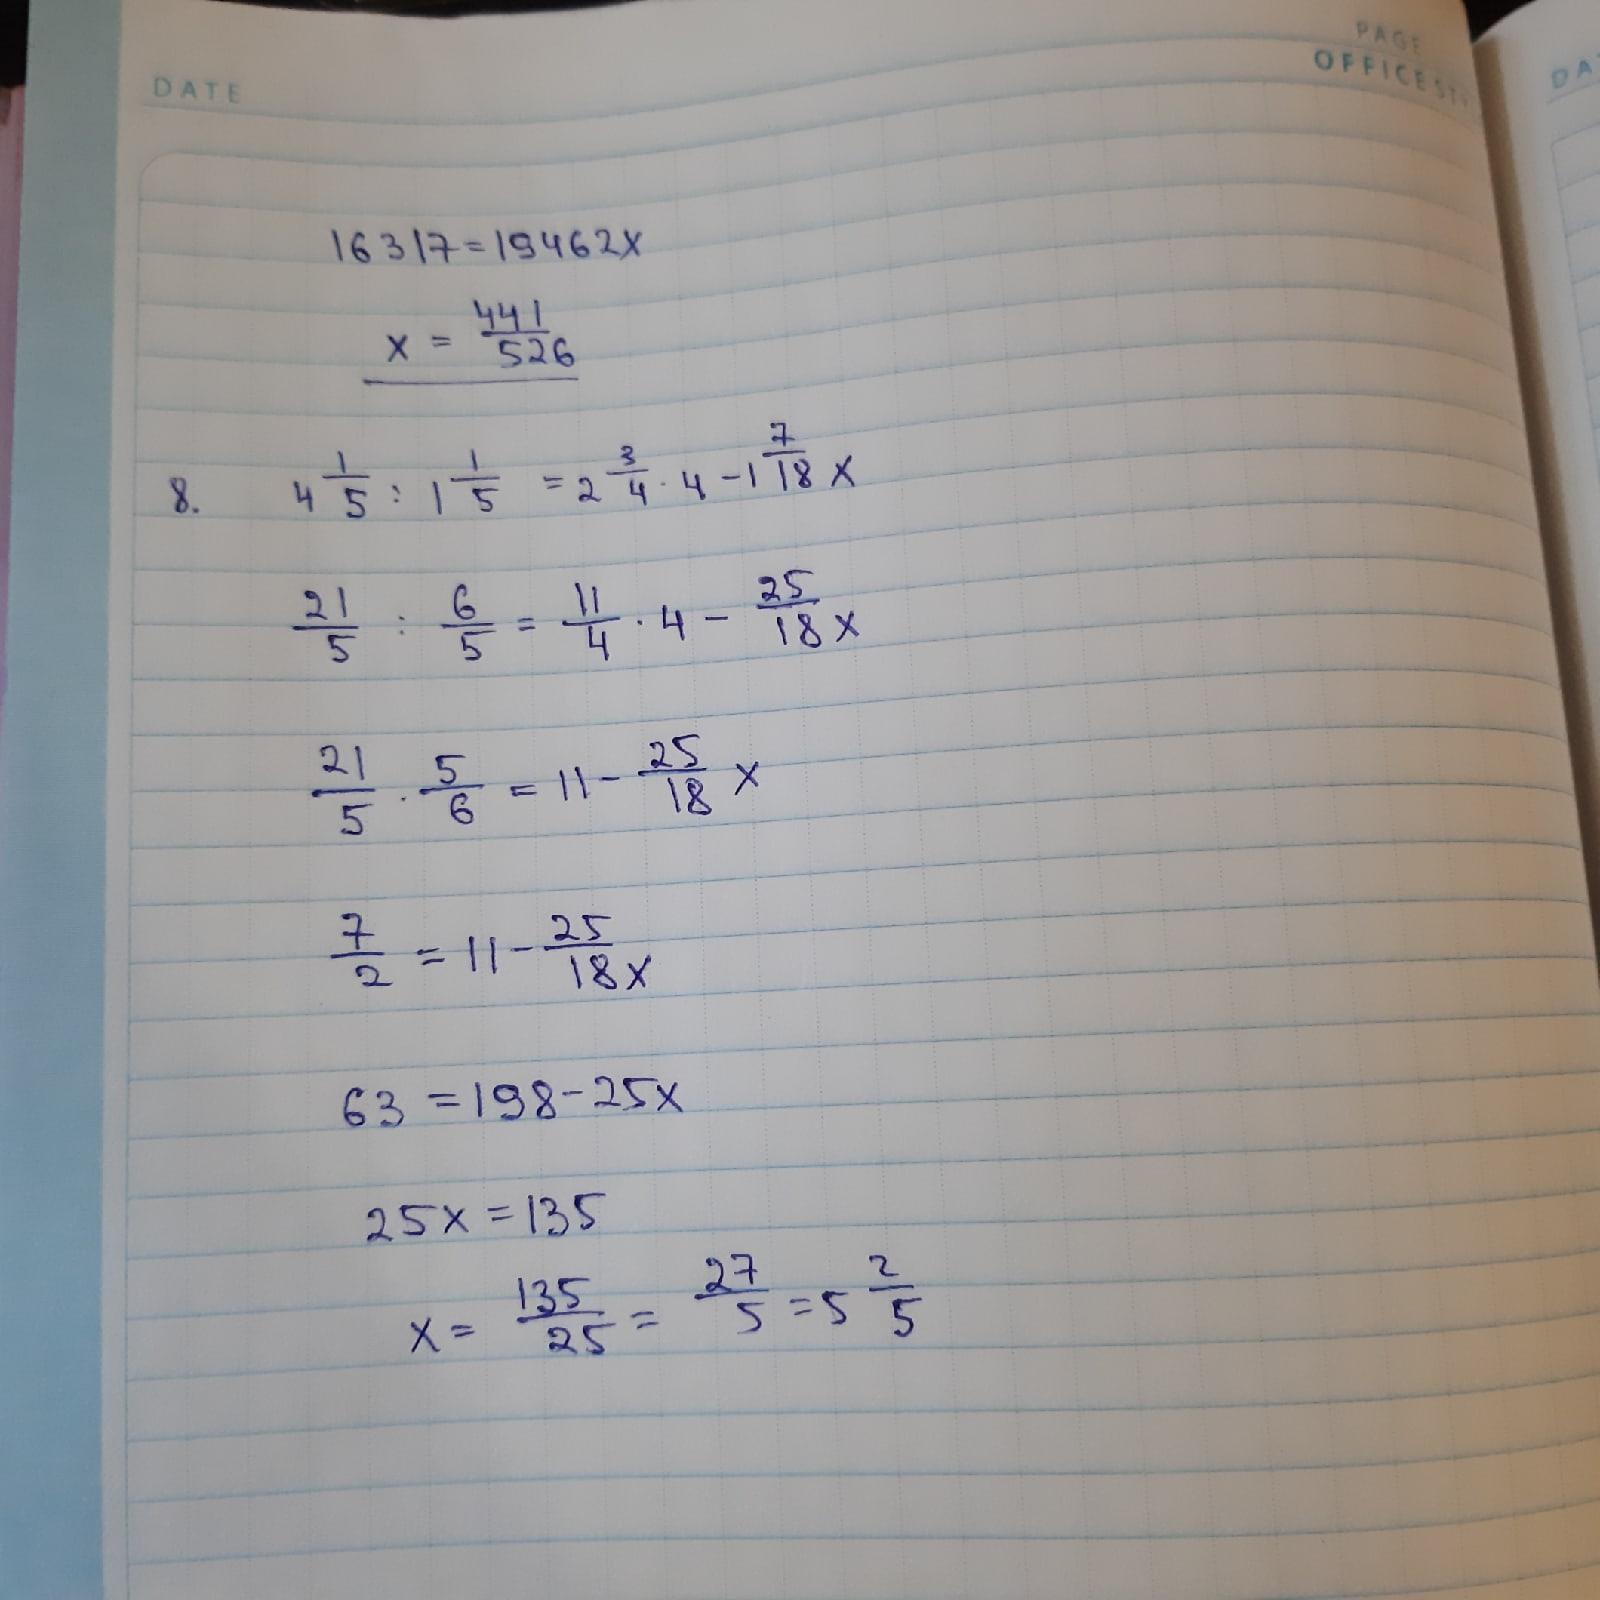 DATE
PAGE
OFFICE ST
DA
16317=19462x
x = 441/526
8. 4 1/5 : 1 1/5 = 2 3/4 · 4 - 1 7/18 x
21/5 : 6/5 = 11/4 · 4 - 25/18 x
21/5 · 5/6 = 11 - 25/18 x
7/2 = 11 - 25/18 x
63 = 198 - 25x
25x = 135
x = 135/25 = 27/5 = 5 2/5